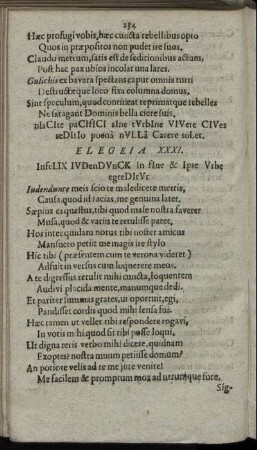 234
Hæc profugi vobis, hæc cuncta rebellibus opto
Quos in præpositos non pudet ire suos,
Claudo metrum, satis est de seditionibus actam,
Post hac pax ubios incolat una lares.
Gulichis ex bavara spectans caput omnia turri
Destructæque loco fixa columna domus,
Sint speculum, quod contineat reprimatque rebelles
Ne fatagant Dominis bella ciere suis,
DIsCIte paCIfICI sIne tVrbIne VIVere CIVes
seDItIo poenâ nVLLâ Carere soLet.
ELEGEIA XXXI.
InfeLIX IVDenDVnCK In fIne & Ipse Vrbe
egreDIeVr
Iudendunte meis scio te maledicere metris,
Causa, quod id facias, me genuina latet.
Sæpius es quæstus, tibi quod male nostra faveret
Musa, quod & vatis te retulisse patet,
Hos inter quidam notus tibi noster amicus
Mansueto petiit me magis ire stylo
Hic tibi (præsentem cum te verona videret)
Adfuit in versus cum loquerere meos.
A te digressus retulit mihi cuncta, loquentem
Audivi placida mente, manumque dedi.
Et pariter summas grates, ut oportuit, egi,
Pandisset cordis quod mihi sensa sui.
Hæc tamen ut vellet tibi respondere rogavi,
In votis mihi quod sit tibi posse loqui,
Ut digna teris verbo mihi dicere, quidnam
Exoptes? nostra innum petiisse domum?
An potiote velis ad te me jure venire!
Me facilem & promptum mox ad utrumque fore.
Sig-